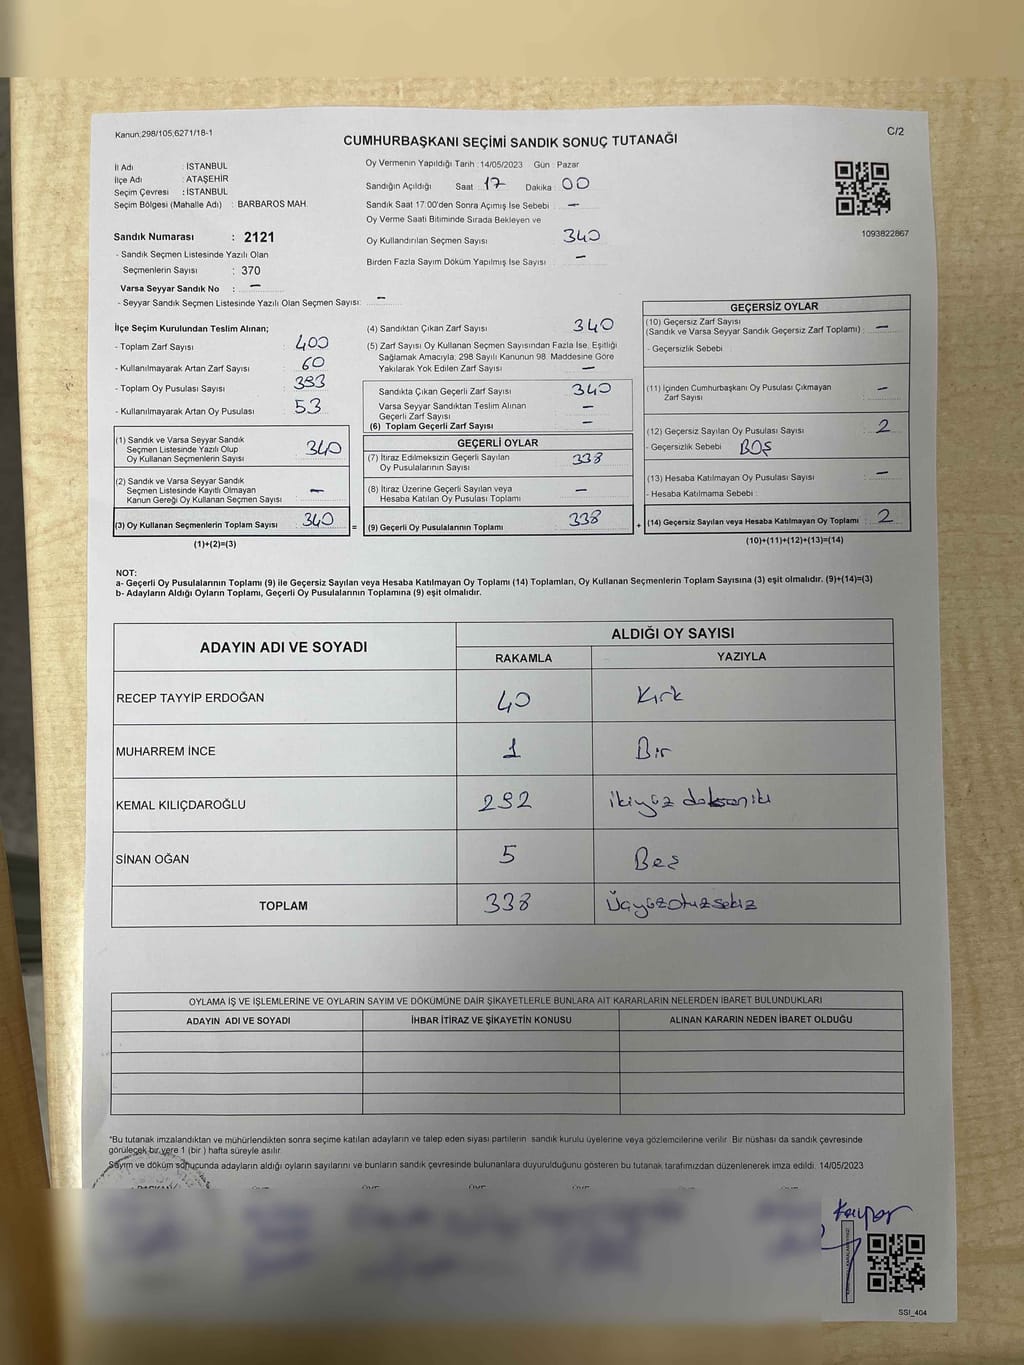 Kanun;298/105;6271/18-1
C/2
CUMHURBAŞKANI SEÇİMİ SANDIK SONUÇ TUTANAĞI
İl Adı : İSTANBUL
İlçe Adı : ATAŞEHİR
Seçim Çevresi : İSTANBUL
Seçim Bölgesi (Mahalle Adı) : BARBAROS MAH.
Sandık Numarası : 2121
- Sandık Seçmen Listesinde Yazılı Olan
Seçmenlerin Sayısı : 370
Varsa Seyyar Sandık No : —
- Seyyar Sandık Seçmen Listesinde Yazılı Olan Seçmen Sayısı: —
Oy Vermenin Yapıldığı Tarih : 14/05/2023 Gün : Pazar
Sandığın Açıldığı Saat : 17 Dakika : 00
Sandık Saat 17:00'den Sonra Açımış İse Sebebi : —
Oy Verme Saati Bitiminde Sırada Bekleyen ve
Oy Kullandırılan Seçmen Sayısı 340
Birden Fazla Sayım Döküm Yapılmış İse Sayısı : —
1093822867
İlçe Seçim Kurulundan Teslim Alınan;
- Toplam Zarf Sayısı : 400
- Kullanılmayarak Artan Zarf Sayısı : 60
- Toplam Oy Pusulası Sayısı : 393
- Kullanılmayarak Artan Oy Pusulası : 53
(1) Sandık ve Varsa Seyyar Sandık
Seçmen Listesinde Yazılı Olup
Oy Kullanan Seçmenlerin Sayısı : 340
(2) Sandık ve Varsa Seyyar Sandık
Seçmen Listesinde Kayıtlı Olmayan
Kanun Gereği Oy Kullanan Seçmen Sayısı : —
(3) Oy Kullanan Seçmenlerin Toplam Sayısı : 340
(1)+(2)=(3)
(4) Sandıktan Çıkan Zarf Sayısı : 340
(5) Zarf Sayısı Oy Kullanan Seçmen Sayısından Fazla İse, Eşitliği
Sağlamak Amacıyla; 298 Sayılı Kanunun 98. Maddesine Göre
Yakılarak Yok Edilen Zarf Sayısı : —
Sandıkta Çıkan Geçerli Zarf Sayısı : 340
Varsa Seyyar Sandıktan Teslim Alınan
Geçerli Zarf Sayısı : —
(6) Toplam Geçerli Zarf Sayısı : —
GEÇERLİ OYLAR
(7) İtiraz Edilmeksizin Geçerli Sayılan
Oy Pusulalarının Sayısı : 338
(8) İtiraz Üzerine Geçerli Sayılan veya
Hesaba Katılan Oy Pusulası Toplamı : —
= (9) Geçerli Oy Pusulalarının Toplamı : 338
GEÇERSİZ OYLAR
(10) Geçersiz Zarf Sayısı
(Sandık ve Varsa Seyyar Sandık Geçersiz Zarf Toplamı) : —
- Geçersizlik Sebebi :
(11) İçinden Cumhurbaşkanı Oy Pusulası Çıkmayan
Zarf Sayısı : —
(12) Geçersiz Sayılan Oy Pusulası Sayısı : 2
- Geçersizlik Sebebi : BOŞ
(13) Hesaba Katılmayan Oy Pusulası Sayısı : —
- Hesaba Katılmama Sebebi :
+ (14) Geçersiz Sayılan veya Hesaba Katılmayan Oy Toplamı : 2
(10)+(11)+(12)+(13)=(14)
NOT:
a- Geçerli Oy Pusulalarının Toplamı (9) ile Geçersiz Sayılan veya Hesaba Katılmayan Oy Toplamı (14) Toplamları, Oy Kullanan Seçmenlerin Toplam Sayısına (3) eşit olmalıdır. (9)+(14)=(3)
b- Adayların Aldığı Oyların Toplamı, Geçerli Oy Pusulalarının Toplamına (9) eşit olmalıdır.
ADAYIN ADI VE SOYADI ALDIĞI OY SAYISI
RAKAMLA YAZIYLA
RECEP TAYYİP ERDOĞAN 40 Kırk
MUHARREM İNCE 1 Bir
KEMAL KILIÇDAROĞLU 292 ikiyüz doksaniki
SİNAN OĞAN 5 Beş
TOPLAM 338 Üçyüzotuzsekiz
OYLAMA İŞ VE İŞLEMLERİNE VE OYLARIN SAYIM VE DÖKÜMÜNE DAİR ŞİKAYETLERLE BUNLARA AİT KARARLARIN NELERDEN İBARET BULUNDUKLARI
ADAYIN ADI VE SOYADI İHBAR İTİRAZ VE ŞİKAYETİN KONUSU ALINAN KARARIN NEDEN İBARET OLDUĞU
*Bu tutanak imzalandıktan ve mühürlendikten sonra seçime katılan adayların ve talep eden siyasi partilerin sandık kurulu üyelerine veya gözlemcilerine verilir. Bir nüshası da sandık çevresinde
görülecek bir yere 1 (bir ) hafta süreyle asılır.
Sayım ve döküm sonucunda adayların aldığı oyların sayılarını ve bunların sandık çevresinde bulunanlara duyurulduğunu gösteren bu tutanak tarafımızdan düzenlenerek imza edildi. 14/05/2023
SSI_404